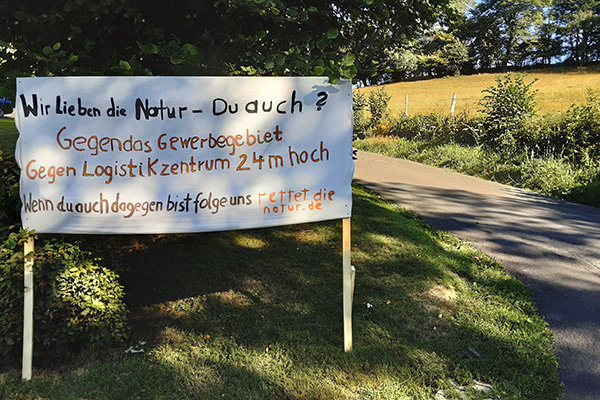 Wir Lieben die Natur - Du auch ?
Gegendas Gewerbegebiet
Gegen Logistikzentrum 24m hoch
Wenn du auch dagegen bist folge uns rettet die
natur.de